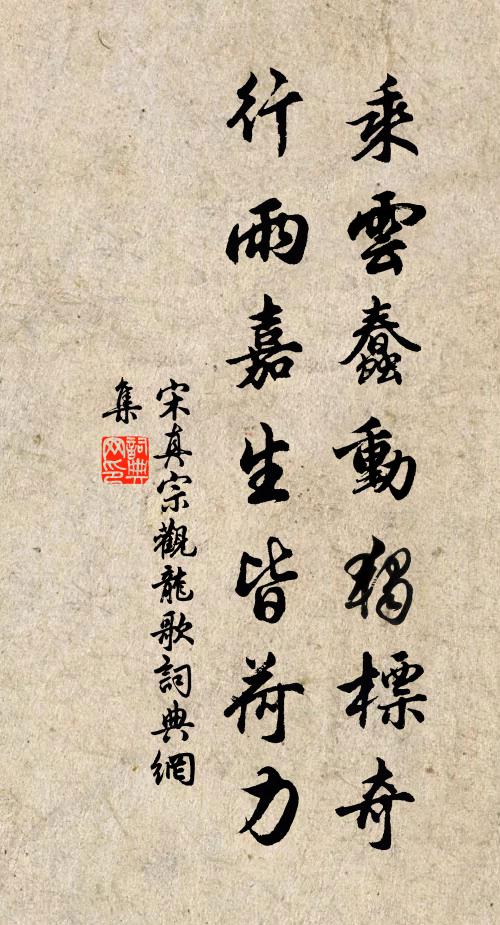 乘雲蠢動獨標奇
行雨嘉生皆荷力
宋真宗觀龍歌詞典網
集
詞典
网印